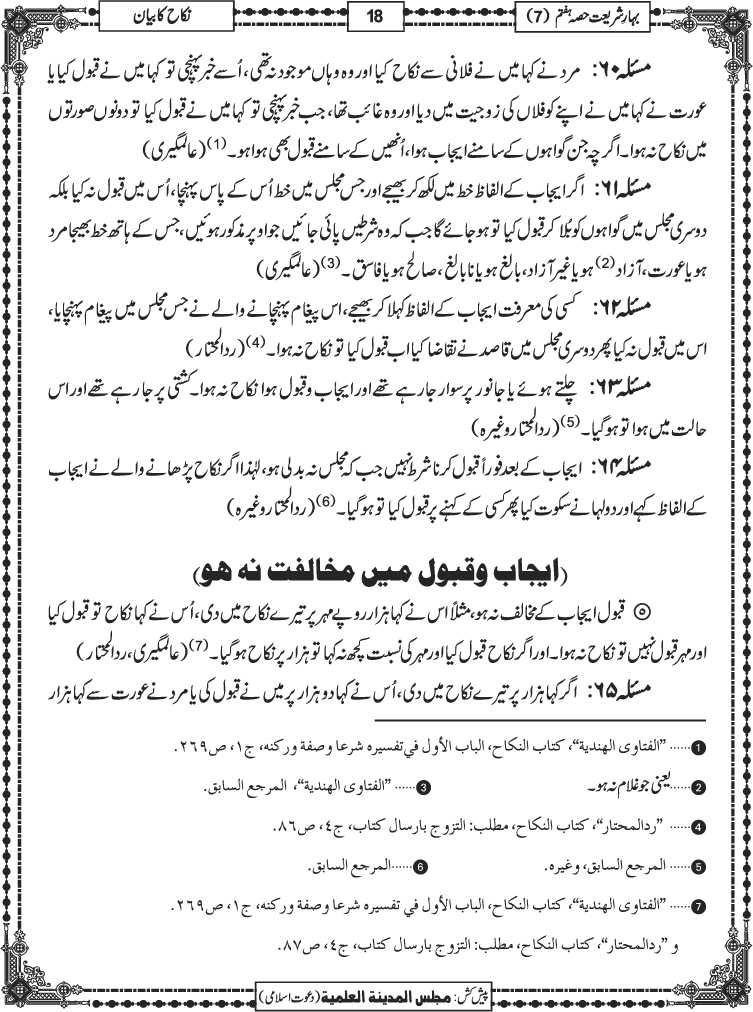 بہارِ شریعت حصہ ہفتم (7)
18
نکاح کا بیان
مسئلہ ۶۰: مرد نے کہا میں نے فلانی سے نکاح کیا اور وہ وہاں موجود نہ تھی، اُسے خبر پہنچی تو کہا میں نے قبول کیا یا
عورت نے کہا میں نے اپنے کو فلاں کی زوجیت میں دیا اور وہ غائب تھا، جب خبر پہنچی تو کہا میں نے قبول کیا تو دونوں صورتوں
میں نکاح نہ ہوا۔ اگرچہ جن گواہوں کے سامنے ایجاب ہوا، اُنھیں کے سامنے قبول بھی ہوا ہو۔(1) (عالمگیری)
مسئلہ ۶۱: اگر ایجاب کے الفاظ خط میں لکھ کر بھیجے اور جس مجلس میں خط اُس کے پاس پہنچا، اُس میں قبول نہ کیا بلکہ
دوسری مجلس میں گواہوں کو بُلا کر قبول کیا تو ہو جائے گا جب کہ وہ شرطیں پائی جائیں جو اوپر مذکور ہوئیں، جس کے ہاتھ خط بھیجا مرد
ہو یا عورت، آزاد(2) ہو یا غیر آزاد، بالغ ہو یا نابالغ، صالح ہو یا فاسق۔(3) (عالمگیری)
مسئلہ ۶۲: کسی کی معرفت ایجاب کے الفاظ کہلا کر بھیجے، اس پیغام پہنچانے والے نے جس مجلس میں پیغام پہنچایا،
اس میں قبول نہ کیا پھر دوسری مجلس میں قاصد نے تقاضا کیا اب قبول کیا تو نکاح نہ ہوا۔(4) (ردالمحتار)
مسئلہ ۶۳: چلتے ہوئے یا جانور پر سوار جا رہے تھے اور ایجاب و قبول ہوا نکاح نہ ہوا۔ کشتی پر جا رہے تھے اور اس
حالت میں ہوا تو ہوگیا۔(5) (ردالمحتار وغیرہ)
مسئلہ ۶۴: ایجاب کے بعد فوراً قبول کرنا شرط نہیں جب کہ مجلس نہ بدلی ہو، لہٰذا اگر نکاح پڑھانے والے نے ایجاب
کے الفاظ کہے اور دولہا نے سکوت کیا پھر کسی کے کہنے پر قبول کیا تو ہوگیا۔(6) (ردالمحتار وغیرہ)
(ایجاب وقبول میں مخالفت نہ ہو)
⑤ قبول ایجاب کے مخالف نہ ہو، مثلاً اس نے کہا ہزار روپے مہر پر تیرے نکاح میں دی، اُس نے کہا نکاح تو قبول کیا
اور مہر قبول نہیں تو نکاح نہ ہوا۔ اور اگر نکاح قبول کیا اور مہر کی نسبت کچھ نہ کہا تو ہزار پر نکاح ہوگیا۔(7) (عالمگیری، ردالمحتار)
مسئلہ ۶۵: اگر کہا ہزار پر تیرے نکاح میں دی، اُس نے کہا دو ہزار پر میں نے قبول کی یا مرد نے عورت سے کہا ہزار
1...... "الفتاوى الهندية"، كتاب النكاح، الباب الأول في تفسيره شرعا وصفة وركنه، ج١، ص٢٦٩.
2...... یعنی جو غلام نہ ہو۔
3...... "الفتاوى الهندية"، المرجع السابق.
4...... "ردالمحتار"، كتاب النكاح، مطلب: التزوج بارسال كتاب، ج٤، ص٨٦.
5...... المرجع السابق، وغيره.
6...... المرجع السابق.
7...... "الفتاوى الهندية"، كتاب النكاح، الباب الأول في تفسيره شرعا وصفة وركنه، ج١، ص٢٦٩.
و "ردالمحتار"، كتاب النكاح، مطلب: التزوج بارسال كتاب، ج٤، ص٨٧.
پیش کش: مجلس المدینة العلمیة (دعوت اسلامی)